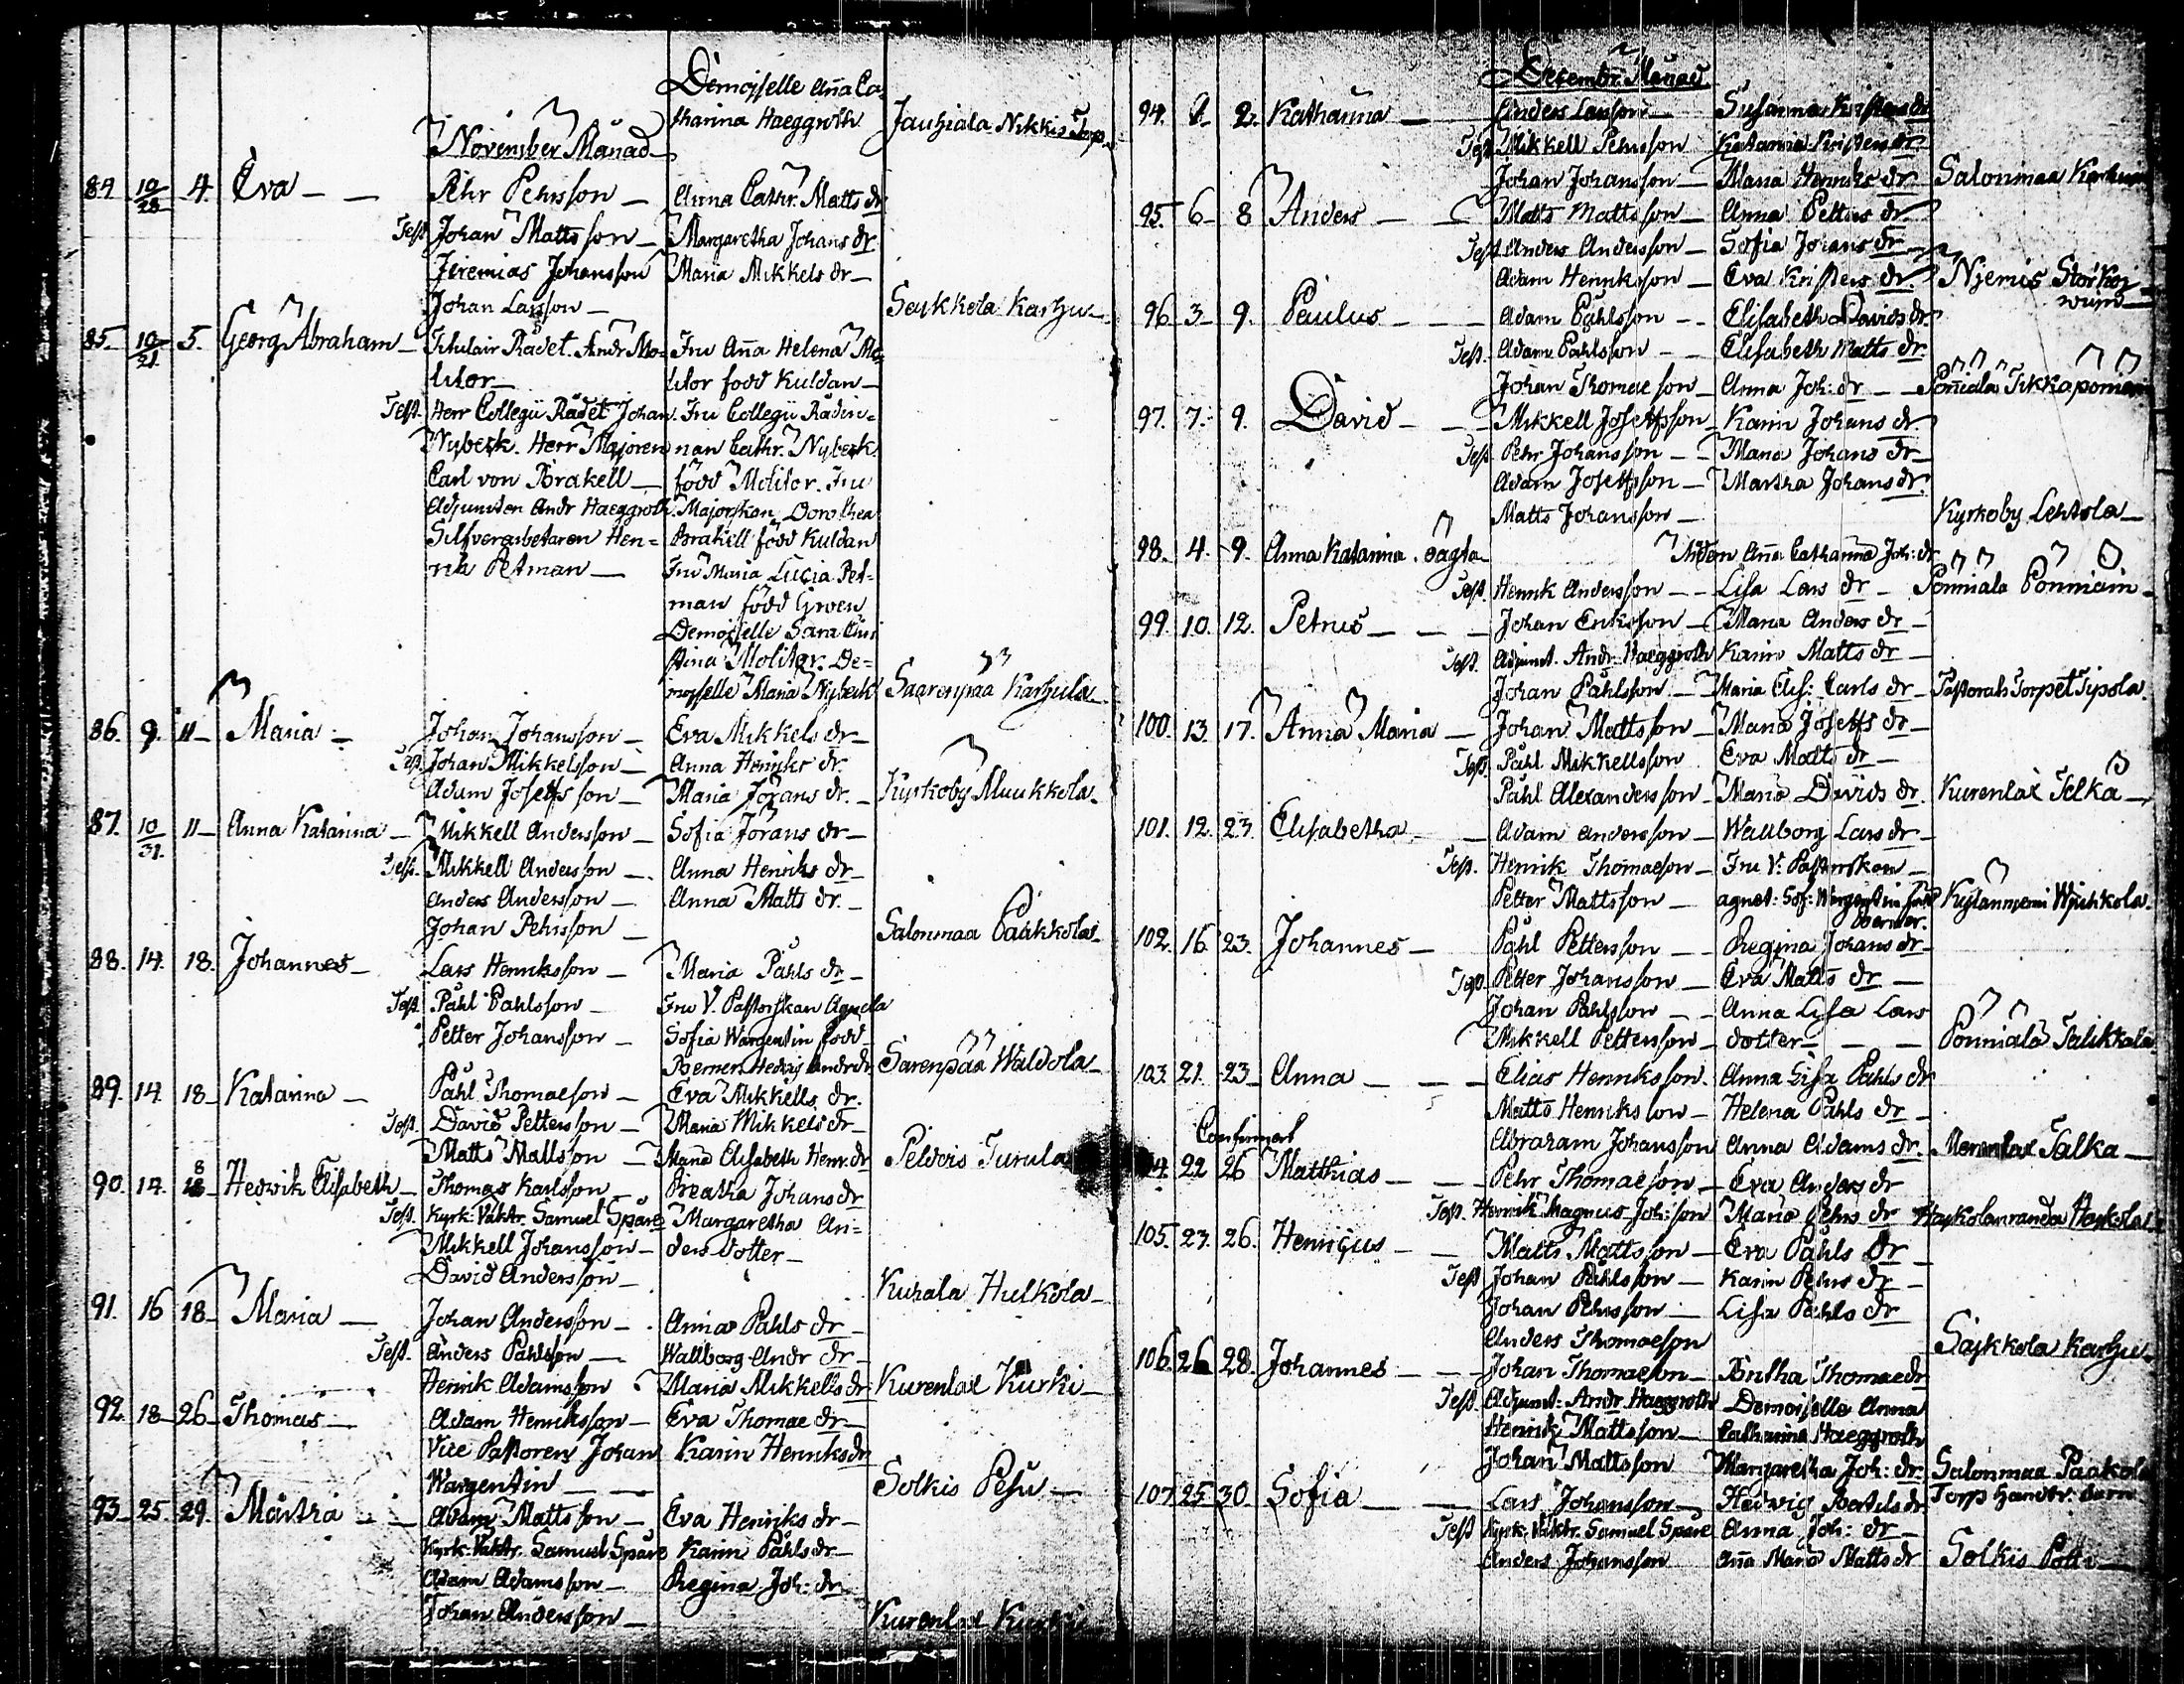 Demoiselle Aña Ca-
tharina Haeggroth Jauhiala Nikkis Torp
November Månad
84 10/28 4. Eva Pehr Pehrsson Anna Cathr. Matts dr
Test. Johan Matts son Margaretha Johans dr
Jeremias Johansson Maria Mikkels dr
Johan Larsson Seykkola Karhu
85. 10/21. 5. Georg Abraham Titulair Rådet. Andr Mo- Fru Aña Helena Mo-
litor litor född Kuldan
Test. Herr Collegii Rådet Johan Fru Collegii Rådin-
Nyberk. Herr Majoren nan Cathr. Nyberk
Carl von Brakell född Molitor. Fru
Adjuncten Andr Haeggroth. Majorskan Dorothea
Silfverarbetaren Hen- Brakell född Kuldan
rik Petman Fru Maria Lucia Pet-
man född Groen
Demoiselle Sara Chri
stina Molitor. De-
moiselle Maria Nyberk Saarenpää Karhula
86. 9. 11 Maria Johan Johansson Eva Mikkels dr
Test. Johan Mikkelsson Anna Henriks dr.
Adam Josefs son Maria Johans dr. Kyrkoby Muukkola
87. 10/31. 11 Anna Katarina Mikkell Andersson Sofia Johans dr
Test. Mikkell Andersson Anna Henriks dr
Anders Andersson Anna Matts dr.
Johan Pehrsson Salonmaa Pääkkola
88. 14. 18. Johannes Lars Henriksson Maria Påhls dr
Test. Påhl Påhlsson Fru V. Pastorskan Agneta
Petter Johansson Sofia Wargentin född
Berner. Hedvig Andr dr Sarenpää Waldola
89. 14. 18 Katarina Påhl Thomaeson Eva Mikkells dr.
Test. David Pettersson Maria Mikkels dr
Matts Mattsson Maria Elisabeth Henr. dr Peldois Turula
90. 14. 18 Hedwik Elisabeth Thomas Karlsson Breatha Johans dr
Test. Kyrk: Vaktr. Samuel Spåre Margaretha An-
Mikkell Johansson ders dotter
David Andersson Kuhala Hulkola
91. 16 18 Maria Johan Andersson Anna Påhls dr
Test. Anders Påhlsson Wallborg Andr dr
Henrik Adamsson Maria Mikkells dr Kurenlax Kurki
92. 18 26 Thomas Adam Henriksson Eva Thomae dr
Vice Pastoren Johan Karin Henriks dr
Wargentin Solkis Pesu
93 25 29. Martha Adam Matts son Eva Henriks dr
Kyrk: Vaktr. Samuel Spåre Karin Påhls dr
Adam Adamsson Regina Joh: dr
Johan Andersson Kurenlax Kurki
Decembr. Månad
94. 2. Katharina Anders Larsson Susanna Kristers dr
Test. Mikkell Pehrsson Katarina Kristers dr
Johan Johansson Maria Henriks dr Salonmaa
95. 6 8 Anders Matts Mattsson Anna Petters dr
Test. Anders Andersson Sofia Johans dr
Adam Henriksson Eva Kristers dr. Njemis Storkoi
96 3 9. Paulus Adam Påhlsson Elisabeth Davids dr.
Test. Adam Påhlsson Elisabeth Matts dr.
Johan Thomae son Anna Joh: dr
97. 7. 9. David Mikkell Josefsson Karin Johans dr
Test. Pehr Johansson Maria Johans dr
Adam Josefsson Martha Johans dr.
Matts Johansson Kyrkoby Lehtola
98. 4. 9. Anna Katarina. oägta Aña Catharina Joh: dr
Test. Henrik Andersson Lisa Lars dr
99. 10. 12. Petrus Johan Eriksson Maria Anders dr
Test. Adjunct. Andr. Haeggroth Karin Matts dr
Johan Påhlsson Maria Elis: Carls dr Pastorals Torpet Sipola
100. 13. 17. Anna Maria Johan Mattsson Maria Josefs dr
Test. Påhl Mikkellsson Eva Matts dr
Påhl Alexandersson Maria Davids dr. Kurenlax Telkä
101. 12. 23. Elisabetha Adam Andersson Wallborg Lars dr
Test. Henrik Thomaeson Fru V: Pastorskan
Petter Mattsson agnet: Sof: Wargentin född Kylänniemi
Berner.
102. 16 23. Johannes Påhl Pettersson Regina Johans dr
Test. Petter Johansson Eva Matts dr
Johan Påhlsson Anna Lisa Lars
Mikkell Pettersson dotter Ponniala Talikkala
103. 21. 23 Anna Elias Henriksson Anna Lisa Påhls dr
Matts Henriks son Helena Påhls dr
Abraham Johansson Anna Adams dr. Talka
22 26 Matthias Pehr Thomaeson Eva Anders dr
Test. Henrik Magnus Joh: son Maria Pehrs dr
105. 23. 26. Henricus Matts Mattsson Eva Påhls dr
Test Johan Påhlsson Karin Pehrs dr
Johan Pehrsson Lisa Påhls dr
Anders Thomaeson Säykkola Karhu
106. 26 28. Johannes Johan Thomaeson Britha Thomae dr
Test. Adjunct: Andr. Haeggroth Demoiselle Anna
Henrik Mattsson Catharina Haeggroth
Johan Mattsson Margaretha Joh: dr. Salonmaa
107 25 30. Sofia Lars Johansson Hedwig Bertils dr.
Test Kyrk: Vaktr. Samuel Spåre Anna Joh: dr
Anders Johansson Aña Maria Matts dr Solkis